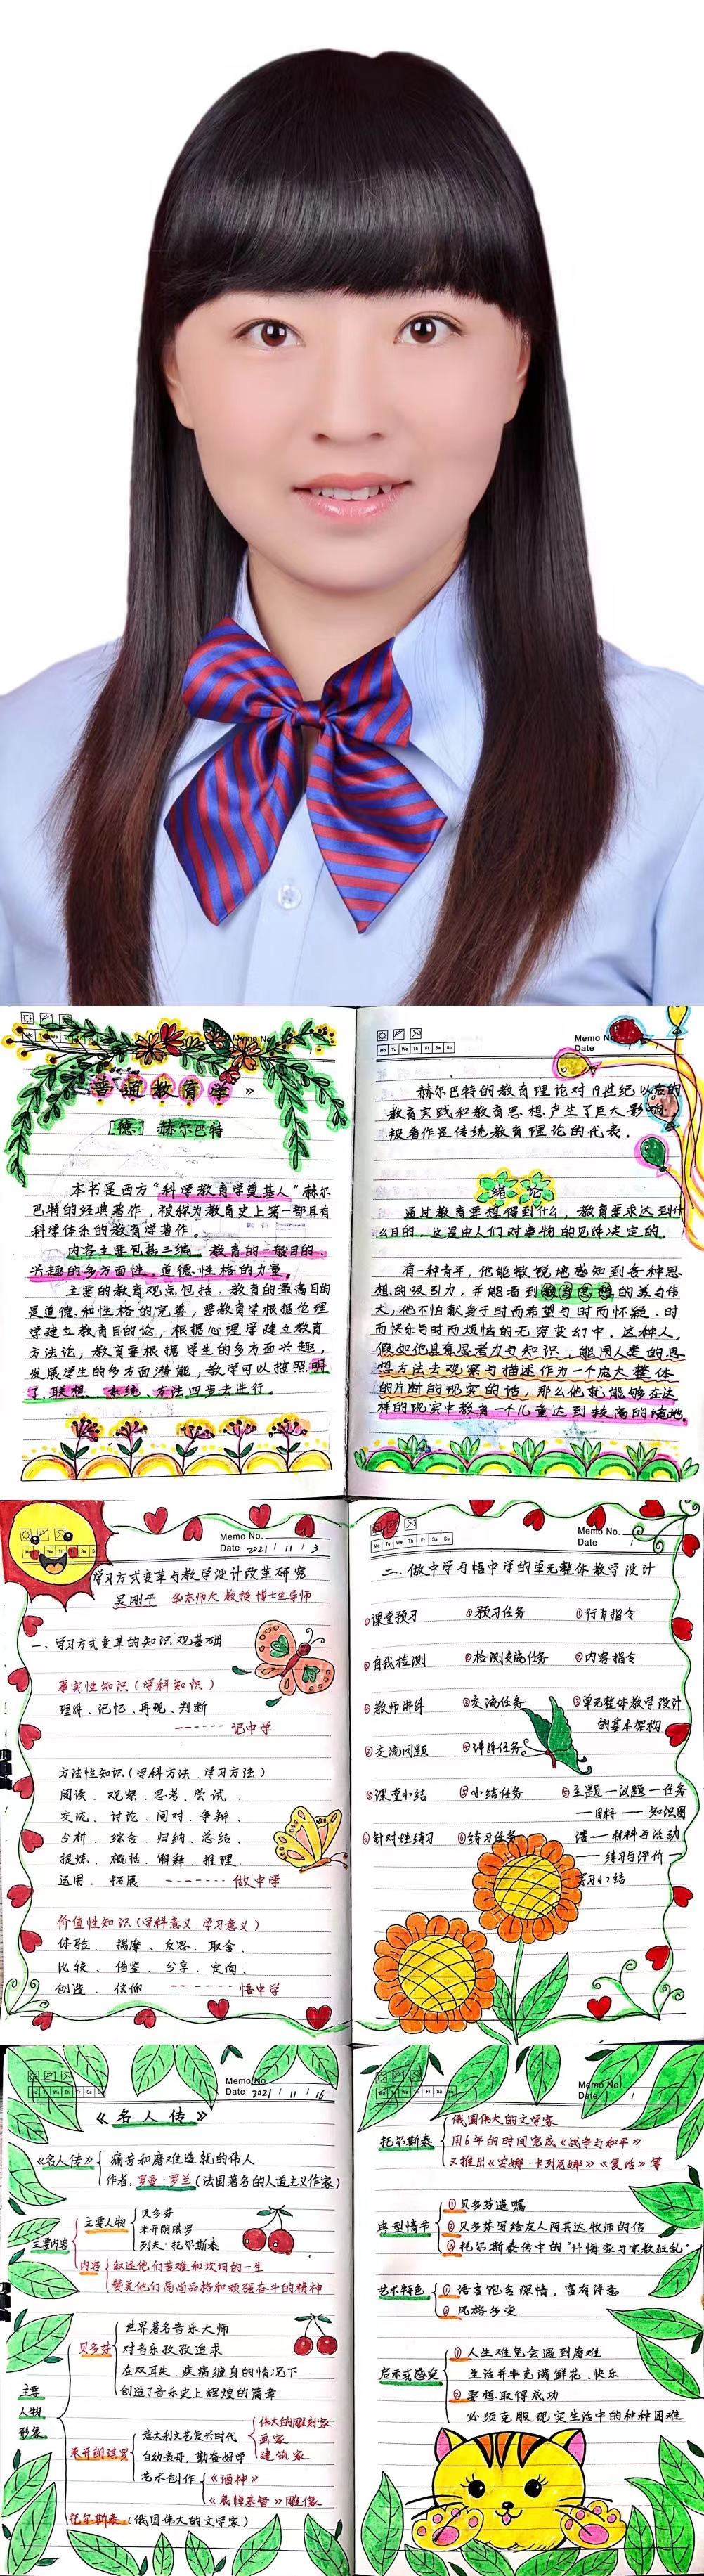 Memo No.
Mo Tu We Th Fr Sa Su
普通教育学》
[德] 赫尔巴特
本书是西方“科学教育学奠基人”赫尔
巴特的经典著作，被称为教育史上第一部具有
科学体系的教育学著作。
内容主要包括三编：教育的一般目的、
兴趣的多方面性、道德性格的力量。
主要的教育观点包括，教育的最高目的
是道德和性格的完善，要教育学根据伦理
学建立教育目的论，根据心理学建立教育
方法论，教育要根据学生的多方面兴趣，
发展学生的多方面潜能，教学可以按照明
了、联想、系统、方法四步去进行。
Mo Tu We Th Fr Sa Su
Memo No.
Date /
赫尔巴特的教育理论对19世纪以后的
教育实践和教育思想产生了巨大影响，
被看作是传统教育理论的代表。
绪论
通过教育要想得到什么，教育要求达到什
么目的，这是由人们对事物的见解决定的。
有一种青年，他能敏锐地感知到各种思
想的吸引力，并能看到教育思想的美与伟
大，他不怕献身于时而希望与时而怀疑、时
而快乐与时而烦恼的无穷变幻中。这种人，
假如他具有思考力与知识，能用人类的思
想方法去观察与描述作为一个庞大整体
的片断的现实的话，那么他就能够在这
样的现实中教育一个儿童达到较高的境地。
Memo No.
Date 2021 / 11 / 3
学习方式变革与教学设计改革研究
吴刚平 华东师大 教授 博士生导师
一、学习方式变革的知识观基础
事实性知识（学科知识）
理解、记忆、再现、判断
------ 记中学
方法性知识（学科方法、学习方法）
阅读、观察、思考、尝试、
交流、讨论、问对、争辩、
分析、综合、归纳、总结、
提炼、概括、解释、推理、
运用、拓展 ------- 做中学
价值性知识（学科意义、学习意义）
体验、揣摩、反思、取舍、
比较、借鉴、分享、定向、
创造、信仰 ------- 悟中学
Memo No.
Date /
二、做中学与悟中学的单元整体教学设计
①课堂预习 ①预习任务 ①行为指令
②自我检测 ②检测交流任务 ②内容指令
③教师讲解 ③交流任务 ③单元整体教学设计
的基本架构
④交流问题 ④讲解任务
⑤课堂小结 ⑤小结任务 主题—议题—任务
—目标—知识图
⑥针对性练习 ⑥练习任务 谱—材料与活动
—练习与评价—
学习小结
Memo No.
Date 2021 / 11 / 16
《名人传》
《名人传》 痛苦和磨难造就的伟人
作者，罗曼·罗兰（法国著名的人道主义作家）
主要内容 主要人物 贝多芬
米开朗琪罗
列夫·托尔斯泰
内容 叙述他们苦难和坎坷的一生
赞美他们高尚品格和顽强奋斗的精神
主要人物形象
贝多芬 世界著名音乐大师
对音乐孜孜追求
在双耳失、疾病缠身的情况下
创造了音乐史上辉煌的篇章
米开朗琪罗 意大利文艺复兴时代 伟大的雕刻家
画家
建筑家
自幼丧母，勤奋好学
艺术创作 《酒神》
《哀悼基督》雕像
托尔斯泰（俄国伟大的文学家）
Memo No.
Date /
托尔斯泰 俄国伟大的文学家
用6年的时间完成《战争与和平》
又推出《安娜·卡列尼娜》《复活》等
典型情节 ①贝多芬遗嘱
②贝多芬写给友人阿其达牧师的信
③托尔斯泰传中的“忏悔家与宗教狂乱”
艺术特色 ①语言饱含深情，富有诗意
②风格多变
启示或感受 ①人生难免会遇到磨难
生活并非充满鲜花、快乐
②要想取得成功
必须克服现实生活中的种种困难